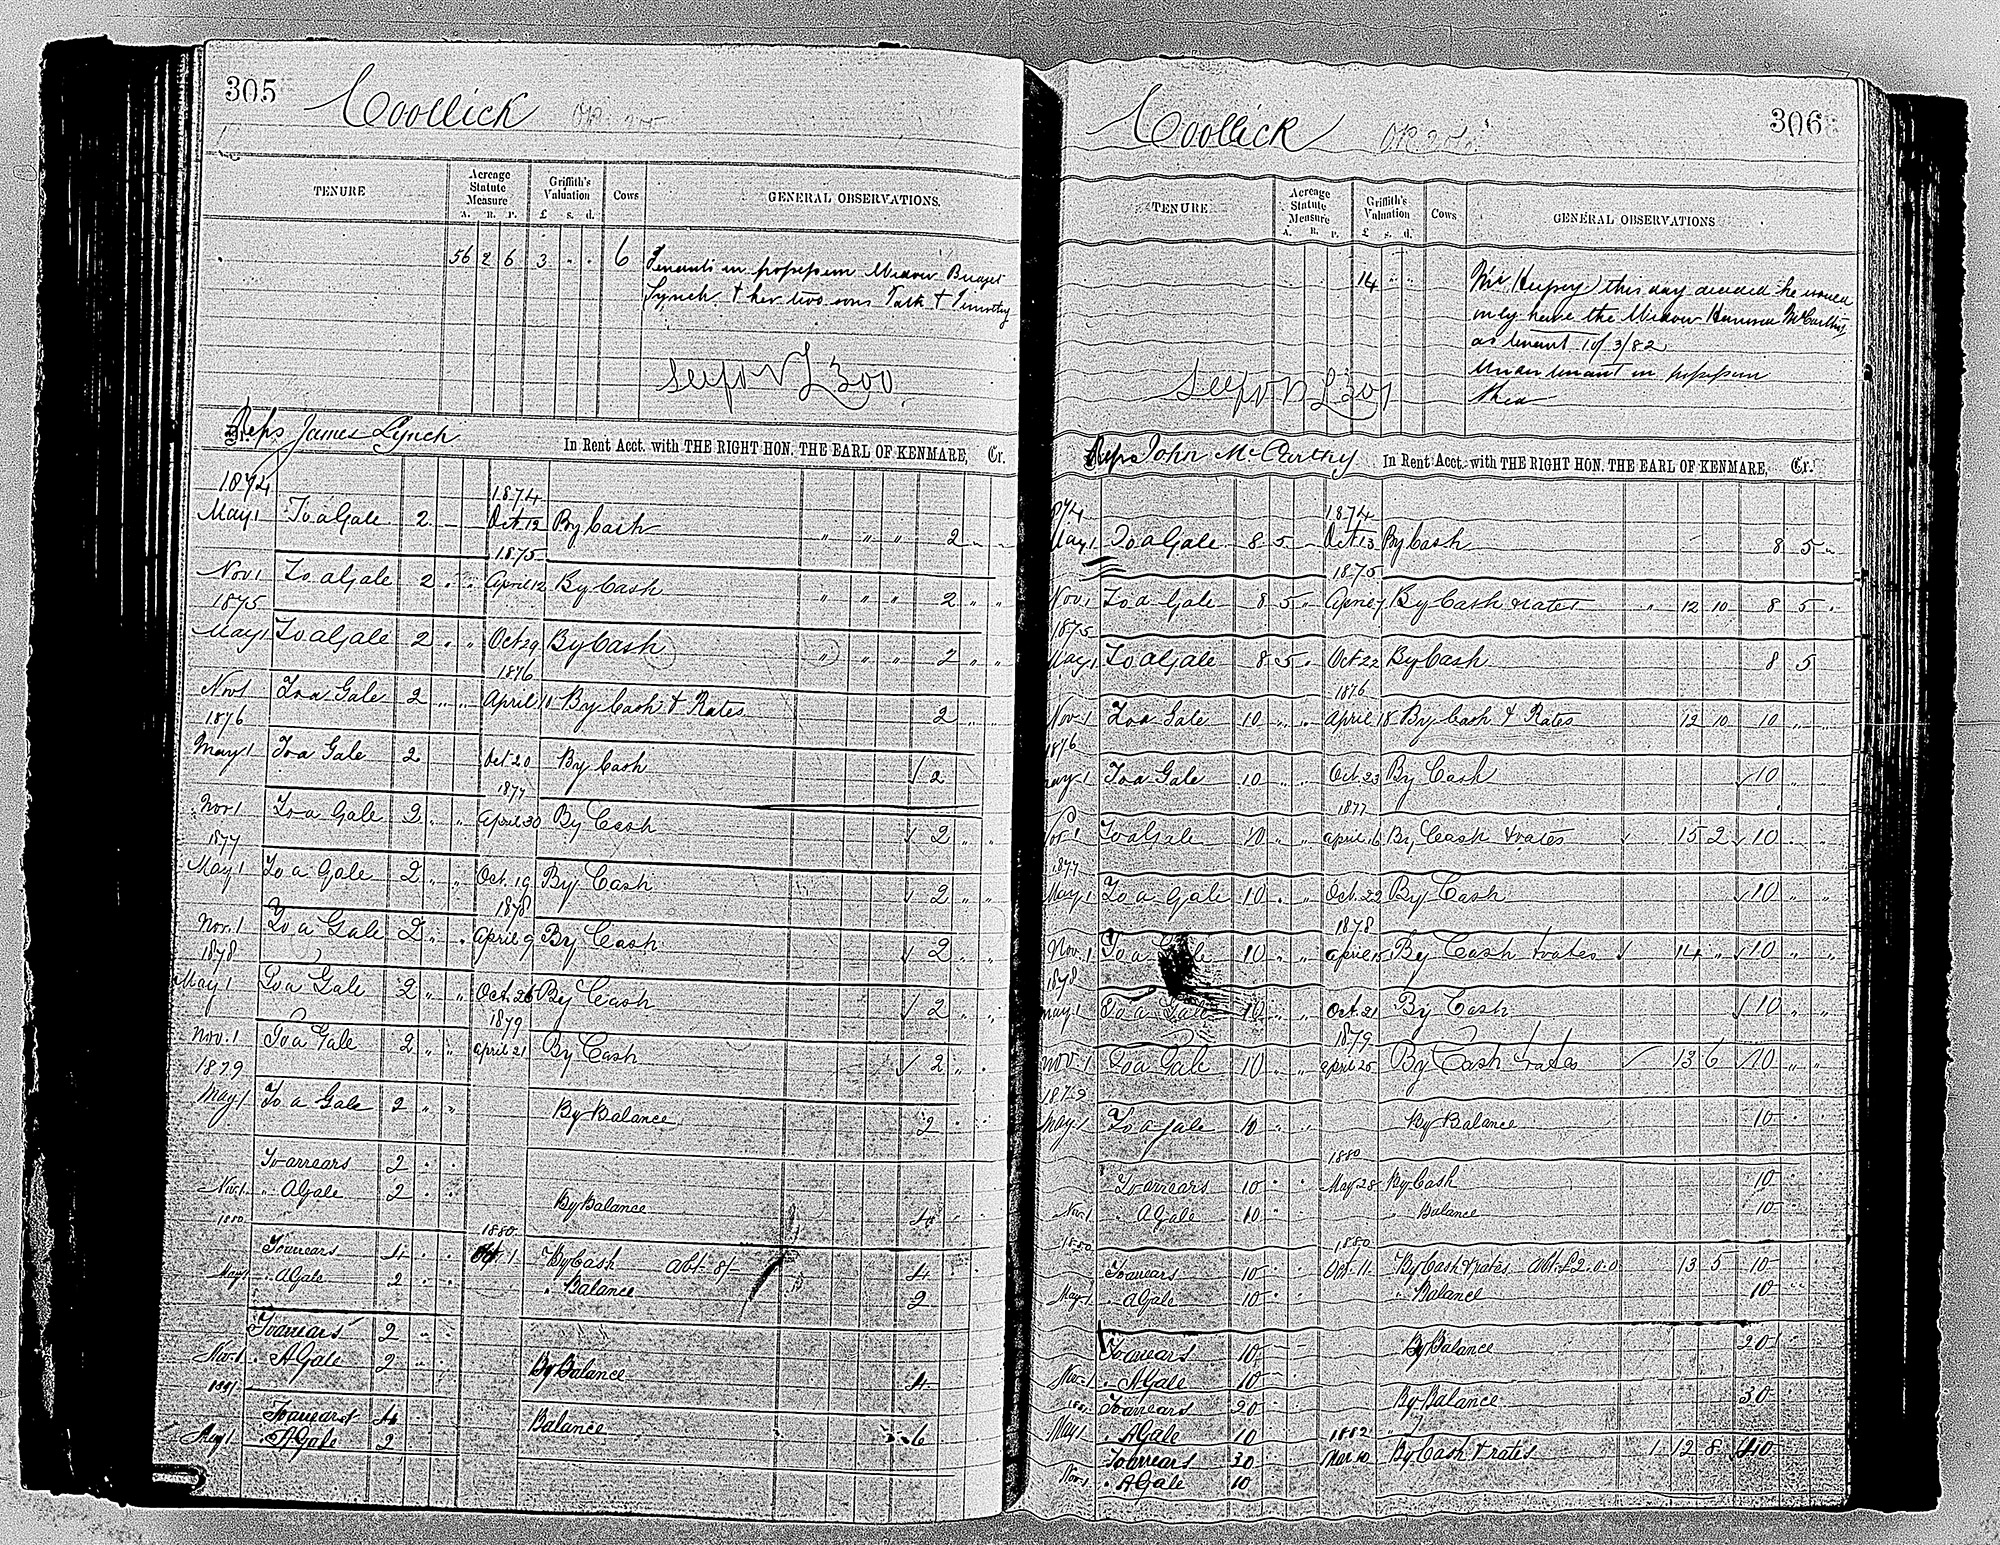 305
Coollick
TENURE
Acreage Statute Measure
A. R. P.
Griffith's Valuation
£ s. d.
Cows
GENERAL OBSERVATIONS.
56 2 6 3 " " 6 Tenants in possession Widow Bridget
Lynch & her two sons Patk & Timothy
£300
Reps James Lynch In Rent Acct. with THE RIGHT HON. THE EARL OF KENMARE, Cr.
1874 1874
May 1 To a Gale 2 Oct. 12 By Cash " " " 2 " "
1875
Nov 1 To a Gale 2 " " April 12 By Cash " " " 2 " "
1875
May 1 To a Gale 2 " " Oct 29 By Cash " " " 2 " "
1876
Nov 1 To a Gale 2 " " April 11 By Cash & Rates 2 " "
1876
May 1 To a Gale 2 Oct 20 By Cash 2
1877
Nov 1 To a Gale 2 " " April 30 By Cash 2 " "
1877
May 1 To a Gale 2 " " Oct. 19 By Cash 2 " "
1878
Nov. 1 To a Gale 2 " " April 9 By Cash 2 " "
1878
May 1 To a Gale 2 " " Oct. 26 By Cash 2 " "
1879
Nov. 1 To a Gale 2 " " April 21 By Cash 2 " "
1879
May 1 To a Gale 2 " " By Balance 2 " "
To arrears 2 " "
Nov. 1 " A Gale 2 " " By Balance 4 " "
1880 1880
To arrears 4 " " Oct. 1 By Cash abt. 8/- 4 " "
May 1 " A Gale 2 " " " Balance 2
To arrears 2 " "
Nov. 1 " A Gale 2 " " By Balance 4
1881
To arrears 4 " "
May 1 " A Gale 2 Balance 6
306
Coollick
TENURE
Acreage Statute Measure
A. R. P.
Griffith's Valuation
£ s. d.
Cows
GENERAL OBSERVATIONS
14 " " Mr Hussey this day decided he would
only have the Widow Hanna McCarthy
as tenant 10/3/82
Under tenant in possession
Shea
£301
Reps John McCarthy In Rent Acct. with THE RIGHT HON. THE EARL OF KENMARE, Cr.
1874 1874
May 1 To a Gale 8 5 Oct 13 By Cash 8 5 "
1875
Nov 1 To a Gale 8 5 " April 7 By Cash & rates " 12 10 8 5 "
1875
May 1 To a Gale 8 5 " Oct 22 By Cash 8 5
1876
Nov 1 To a Gale 10 " " April 18 By Cash & Rates 12 10 10 " "
1876
May 1 To a Gale 10 " " Oct. 23 By Cash 10
1877
Nov 1 To a Gale 10 " " April 16 By Cash & rates 15 2 10 " "
1877
May 1 To a Gale 10 " " Oct. 22 By Cash 10 " "
1878
Nov. 1 To a Gale 10 " " April 15 By Cash & rates 14 " 10 " "
1878
May 1 To a Gale 10 " " Oct. 21 By Cash 10
1879
Nov. 1 To a Gale 10 " " April 25 By Cash & rates 13 6 10 " "
1879
May 1 To a Gale 10 " " By Balance 10 "
1880
To arrears 10 " " May 28 By Cash 10 "
Nov. 1 " A Gale 10 " " Balance 10 "
1880 1880
To arrears 10 " " Oct. 11 By Cash & rates abt. £2.0.0 13 5 10
May 1 " A Gale 10 " " " Balance 10 "
To arrears 10 By Balance 20
Nov. 1 " A Gale 10
1881 To arrears 20 By Balance 30
May 1 " A Gale 10 1882
To arrears 30 Mar 10 By Cash & rates 1 12 8 40
Nov. 1 " A Gale 10